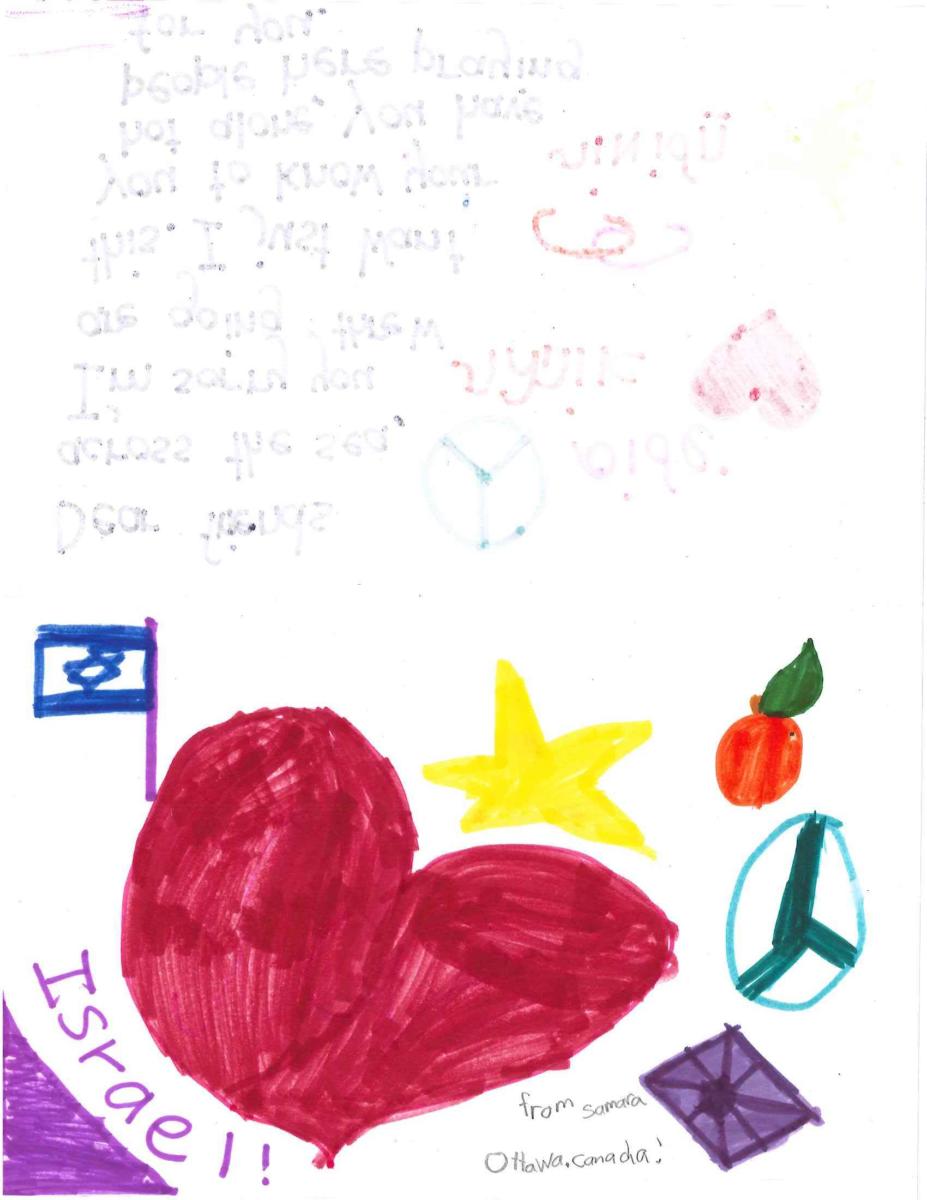 Dear friends
across the sea,
I'm sorry you
are going threw
this. I just want
you to know your
not alone. You have
people here praying
for you.
Israel!!
from samara
Ottawa, canada!